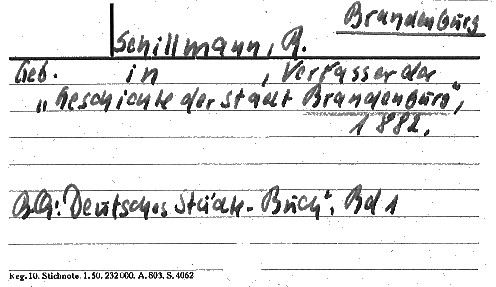 Brandenburg
Schillmann, R.
Geb. in , Verfasser der
„Geschichte der Stadt Brandenburg",
1882.
BQ: „Deutsches Städte-Buch", Bd 1
Reg. 10. Stichnote. 1. 50. 232 000. A. 803. S. 4062